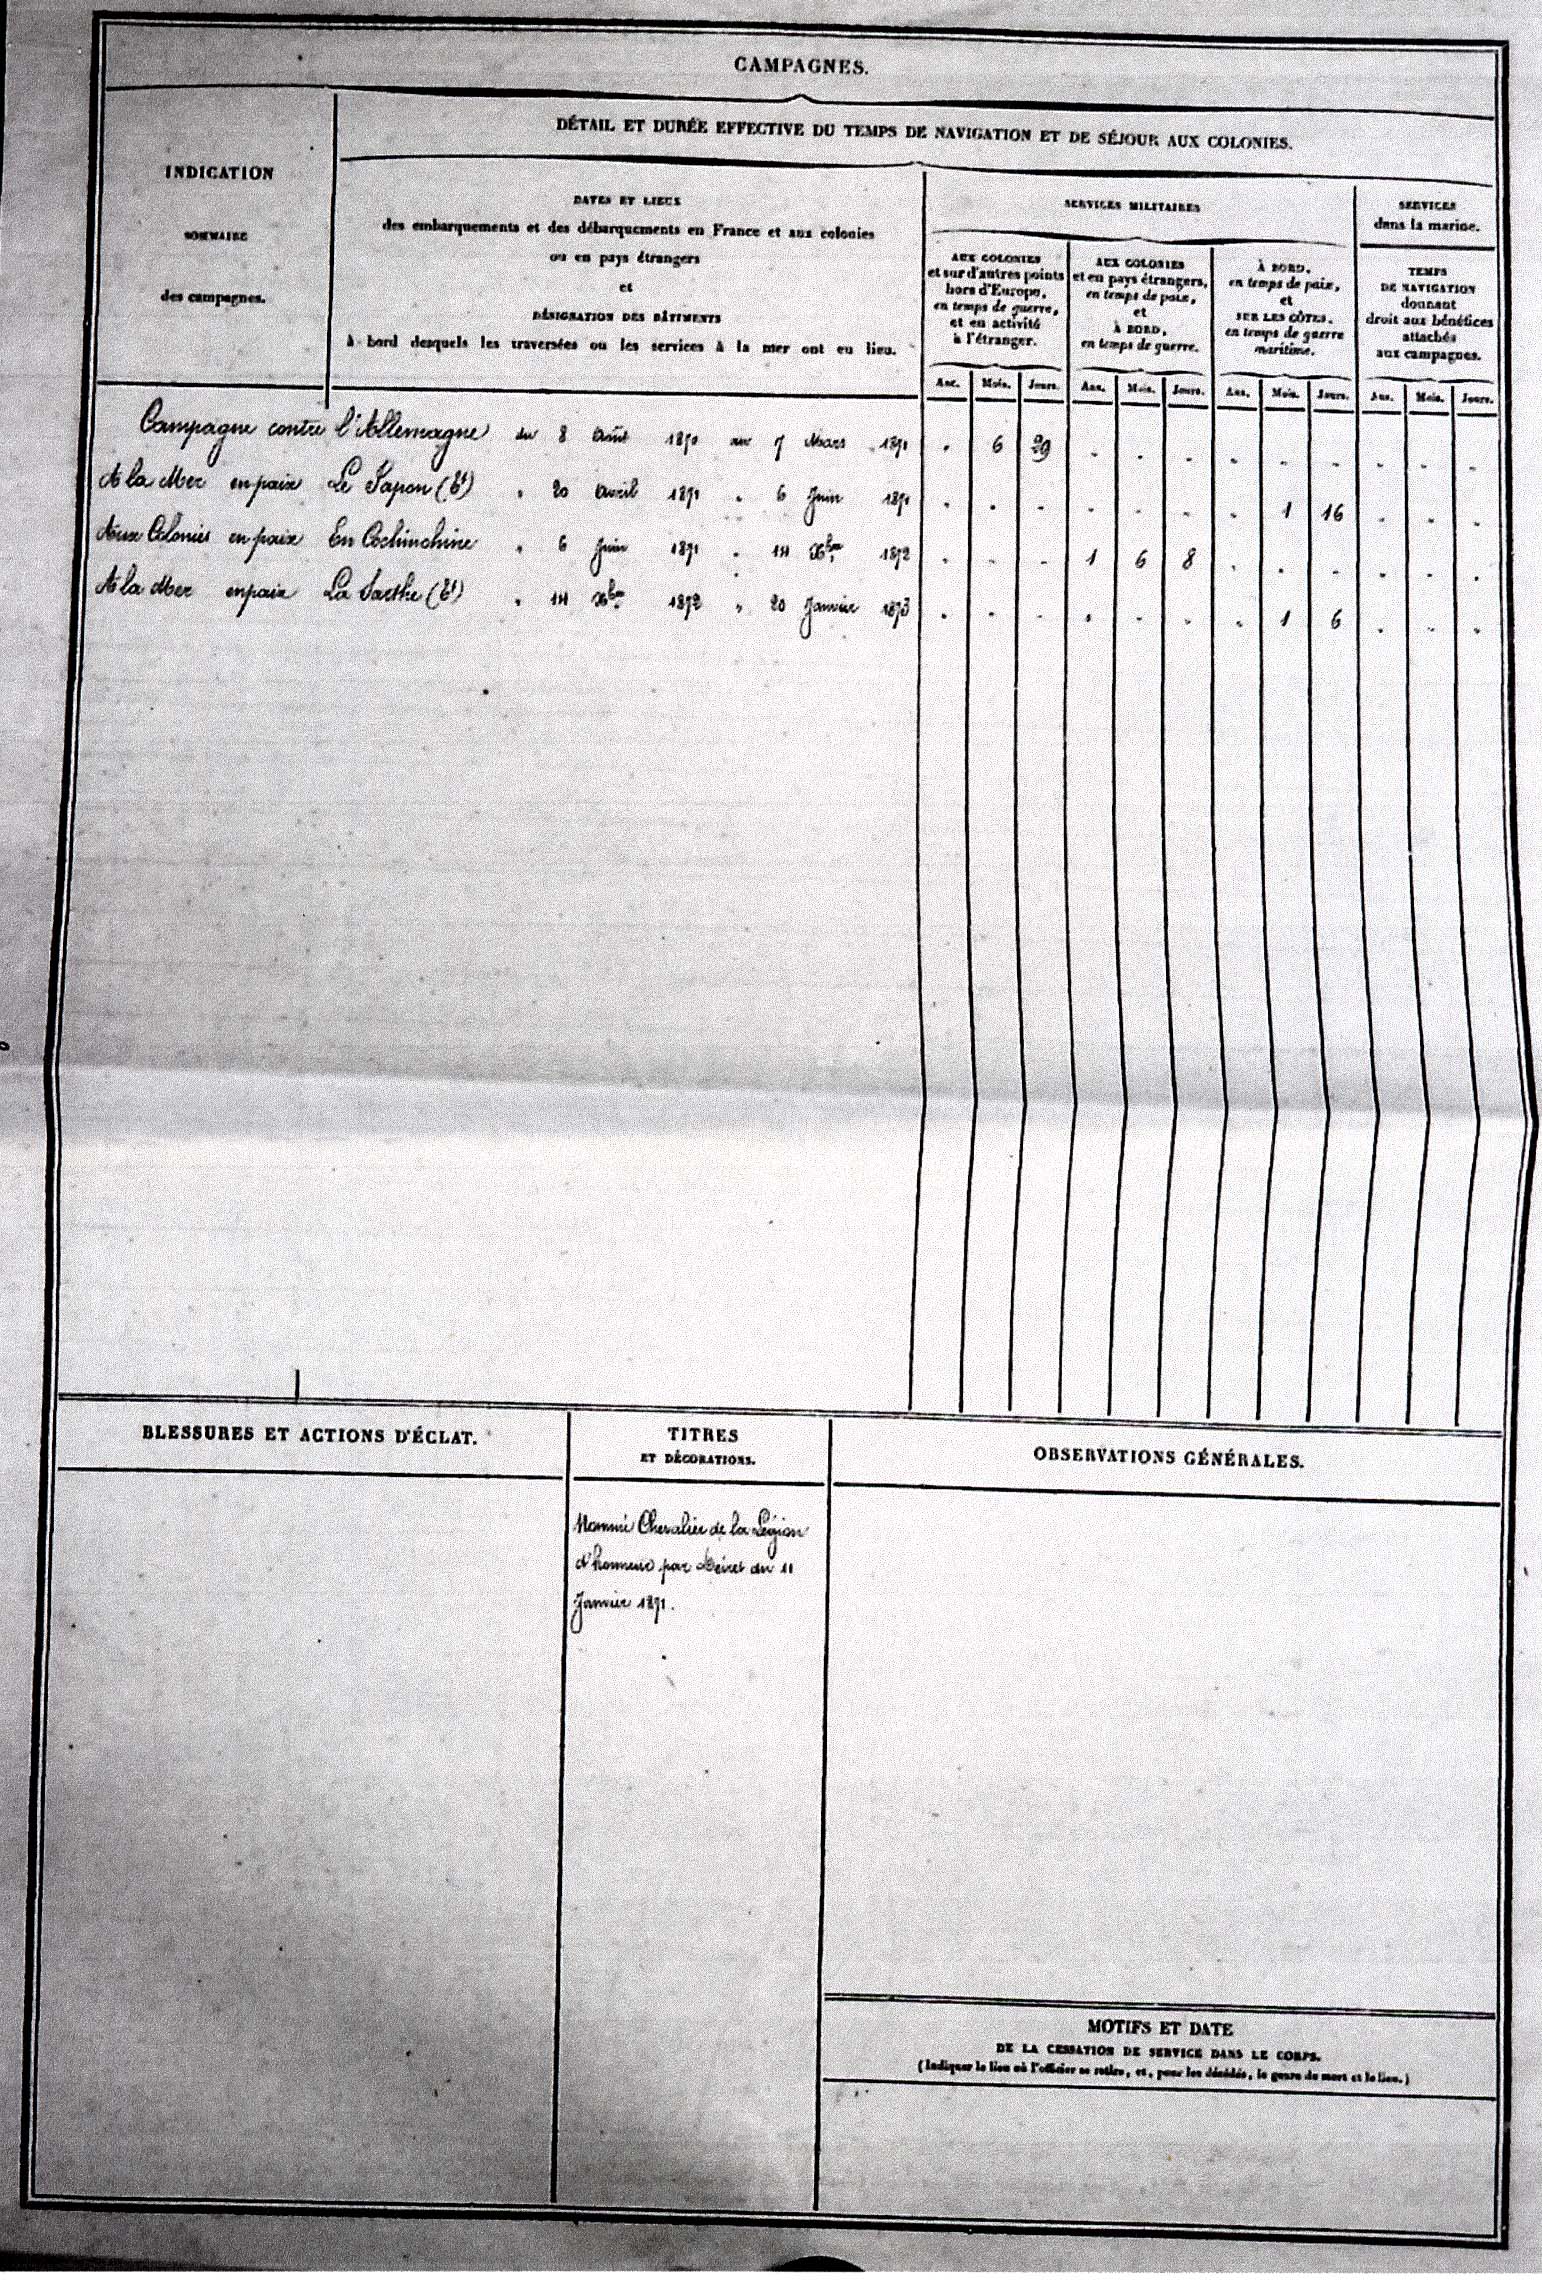 CAMPAGNES.
DÉTAIL ET DURÉE EFFECTIVE DU TEMPS DE NAVIGATION ET DE SÉJOUR AUX COLONIES.
INDICATION
SOMMAIRE
des campagnes.
DATES ET LIEUX
des embarquements et des débarquements en France et aux colonies
ou en pays étrangers
et
DÉSIGNATION DES BÂTIMENTS
à bord desquels les traversées ou les services à la mer ont eu lieu.
SERVICES MILITAIRES
AUX COLONIES
et sur d'autres points
hors d'Europe,
en temps de guerre,
et en activité
à l'étranger.
AUX COLONIES
et en pays étrangers,
en temps de paix,
et
À BORD,
en temps de guerre.
À BORD,
en temps de paix,
et
SUR LES CÔTES,
en temps de guerre
maritime.
SERVICES
dans la marine.
TEMPS
DE NAVIGATION
donnant
droit aux bénéfices
attachés
aux campagnes.
Ans. Mois. Jours. Ans. Mois. Jours. Ans. Mois. Jours. Ans. Mois. Jours.
Campagne contre l'Allemagne du 8 Août 1870 au 7 Mars 1871 " 6 29 " " " " " " " " "
A la Mer en paix Le Japon (tt) " 20 Avril 1871 " 6 Juin 1871 " " " " " " " 1 16 " " "
Aux Colonies en paix En Cochinchine " 6 Juin 1871 " 14 Xbre 1872 " " " 1 6 8 " " " " " "
A la Mer en paix La Sarthe (tt) " 14 Xbre 1872 " 20 Janvier 1873 " " " " " " " 1 6 " " "
BLESSURES ET ACTIONS D'ÉCLAT.
TITRES
ET DÉCORATIONS.
Nommé Chevalier de la Légion
d'honneur par décret du 11
Janvier 1871.
OBSERVATIONS GÉNÉRALES.
MOTIFS ET DATE
DE LA CESSATION DE SERVICE DANS LE CORPS.
(Indiquer le lieu où l'officier se retire, et, pour les décédés, le genre de mort et le lieu.)